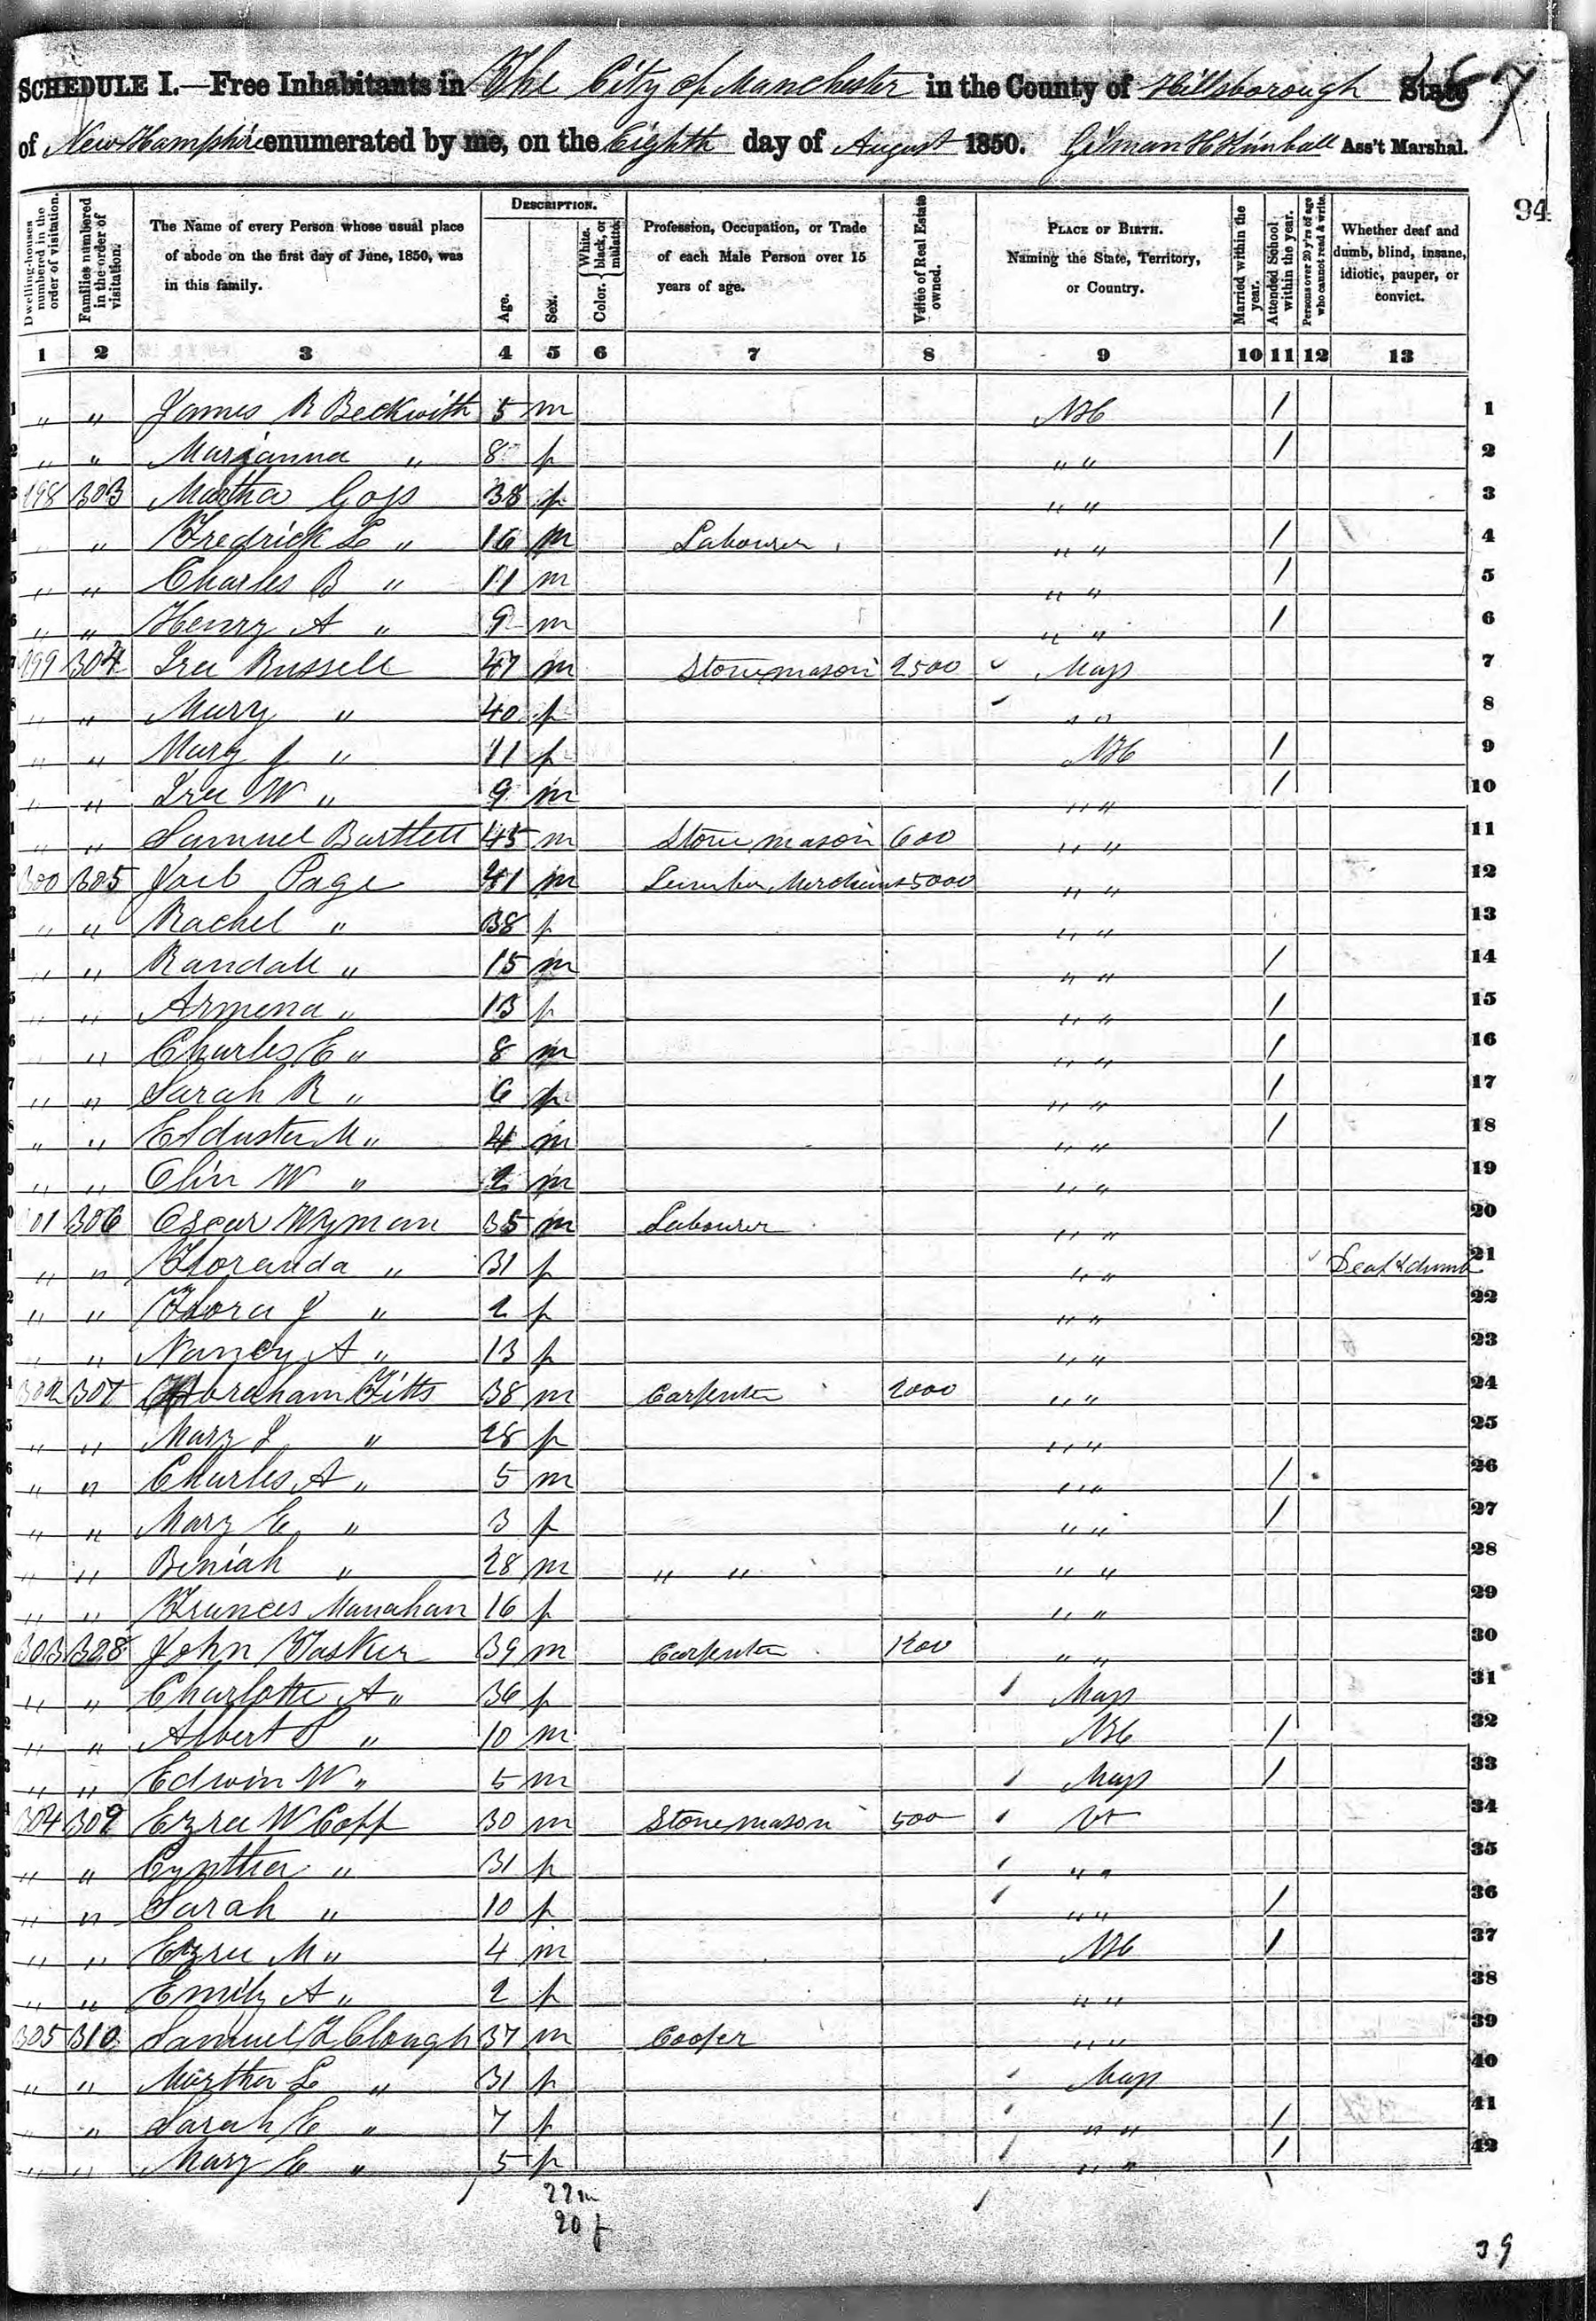 SCHEDULE I.—Free Inhabitants in The City of Manchester in the County of Hillsborough State
of New Hampshire enumerated by me, on the Eighth day of August 1850. Gilman H Kimball Ass't Marshal.
94
Dwelling-houses numbered in the order of visitation.
Families numbered in the order of visitation.
The Name of every Person whose usual place of abode on the first day of June, 1850, was in this family.
DESCRIPTION.
Age.
Sex.
Color. White, black, or mulatto.
Profession, Occupation, or Trade of each Male Person over 15 years of age.
Value of Real Estate owned.
PLACE OF BIRTH. Naming the State, Territory, or Country.
Married within the year.
Attended School within the year.
Persons over 20 y'rs of age who cannot read & write.
Whether deaf and dumb, blind, insane, idiotic, pauper, or convict.
1 2 3 4 5 6 7 8 9 10 11 12 13
1 " " James R Beckwith 5 m NH / 1
2 " " Marianna " 8 f " " / 2
3 298 303 Martha Goss 38 f " " 3
4 " Fredrick L " 16 m Labourer " " / 4
5 " " Charles B " 11 m " " / 5
6 " " Henry A " 9 m " " / 6
7 299 304 Ira Russell 47 m Stone mason 2500 Mass 7
8 " " Mary " 40 f " " 8
9 " " Mary J " 11 f NH / 9
10 " " Ira W " 9 m " " / 10
11 " " Samuel Bartlett 45 m Stone mason 600 " " 11
12 300 305 Job Page 41 m Lumber Merchant 5000 " " 12
13 " " Rachel " 38 f " " 13
14 " " Randall " 15 m " " / 14
15 " " Armena " 13 f " " / 15
16 " Charles E " 8 m " " / 16
17 " " Sarah R " 6 f " " / 17
18 " " M " 4 m " " / 18
19 " " Olin W " 2 m " " 19
20 301 306 Oscar Wyman 35 m Labourer " " 20
21 " " Floranda " 31 f " " Deaf & dumb 21
22 " " Flora J " 2 f " " 22
23 " " Nancy A " 13 f " " 23
24 302 307 Abraham Fitts 38 m Carpenter 2000 " " 24
25 " " Mary L " 28 f " " 25
26 " " Charles A " 5 m " " / 26
27 " " Mary E " 3 f " " / 27
28 " " Beniah " 28 m " " " " 28
29 " " Frances Manahan 16 f " " 29
30 303 308 John Tasker 39 m Carpenter 1200 " " 30
31 " " Charlotte A " 36 f Mass 31
32 " " Albert P " 10 m NH / 32
33 " " Edwin W " 5 m Mass / 33
34 304 309 Ezra W Copp 30 m Stone mason 500 Vt 34
35 " " Cynthia " 31 f " " 35
36 " " Sarah " 10 f " " / 36
37 " " Ezra M " 4 m NH / 37
38 " " Emily A " 2 f " " 38
39 305 310 Samuel F Clough 37 m Cooper " " 39
40 " " Martha L " 31 f Mass 40
41 " Sarah E " 7 f " " / 41
42 " " Mary E " 5 f " " / 42
22 m
20 f
39